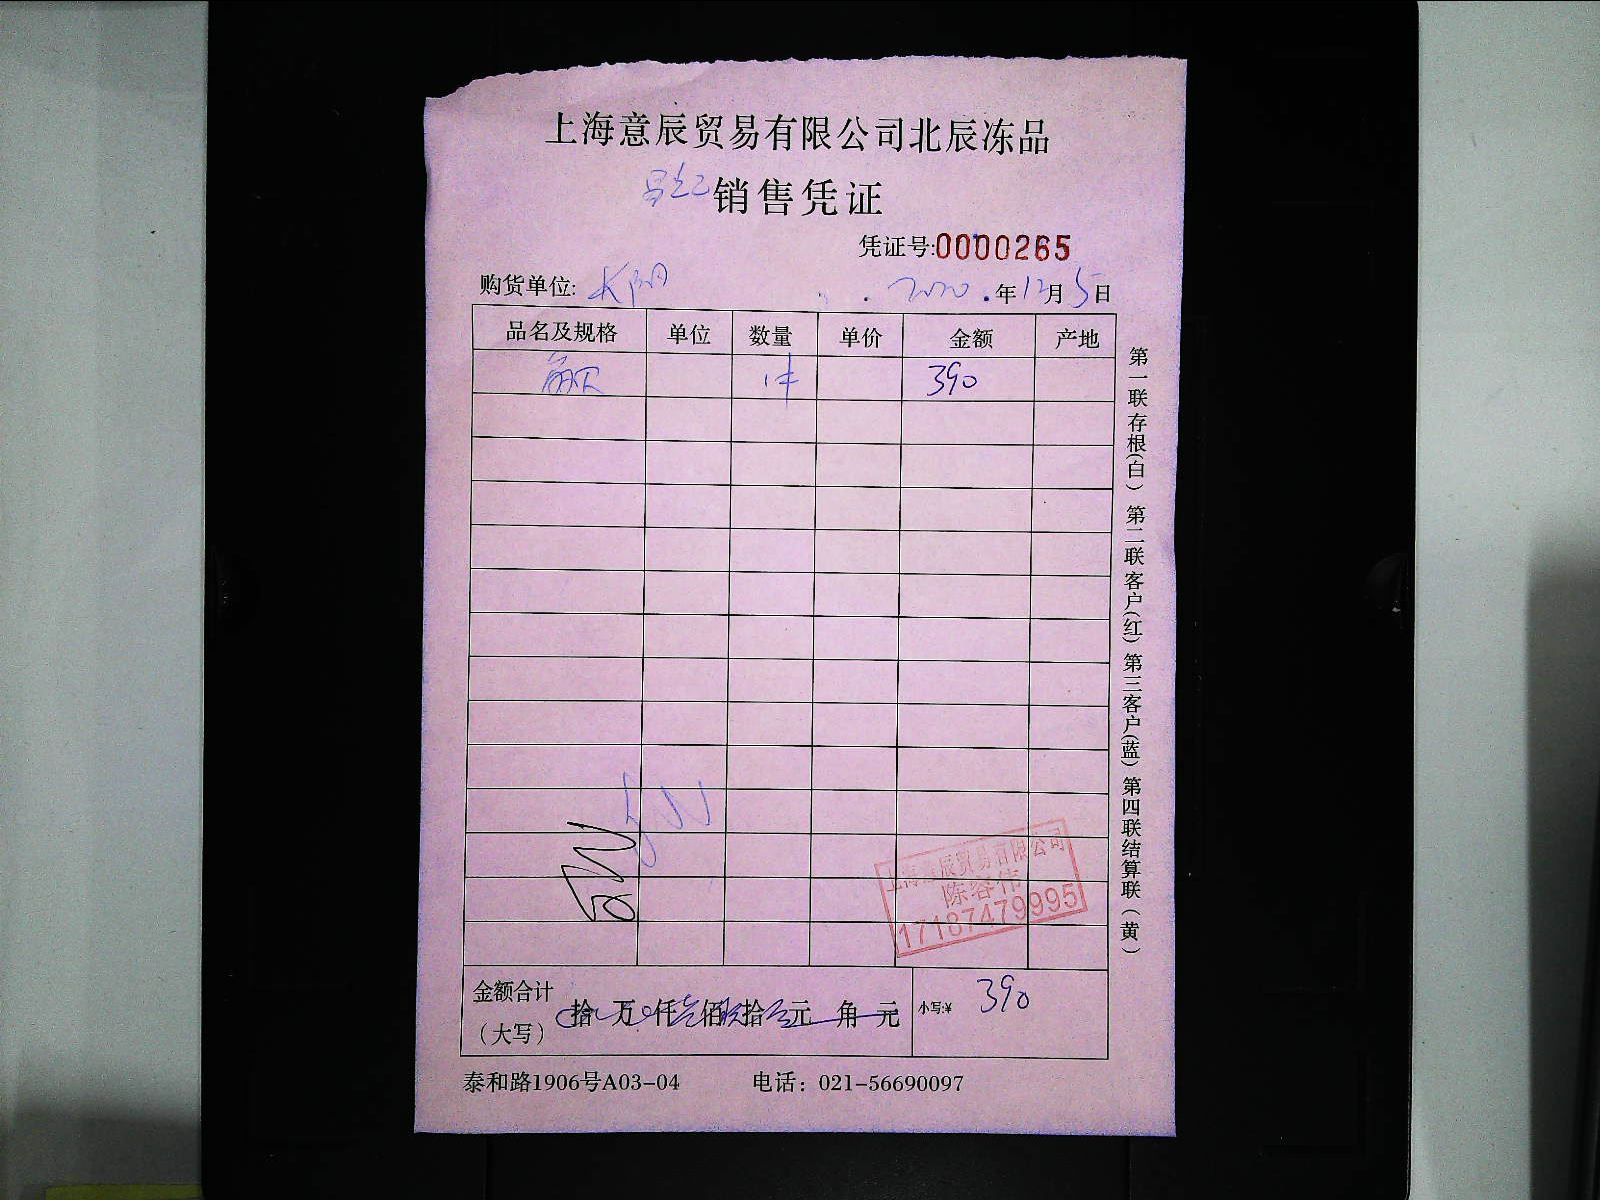 上海意辰贸易有限公司北辰冻品
销售凭证
凭证号:0000265
购货单位: 长阳 2020年12月5日
品名及规格 单位 数量 单价 金额 产地
1件 390
上海意辰贸易有限公司
陈容伟
17187479995
金额合计
(大写) 拾 万 仟 佰 拾 元 角 元 小写:¥ 390
泰和路1906号A03-04 电话: 021-56690097
第一联存根(白) 第二联客户(红) 第三客户(蓝) 第四联结算联(黄)